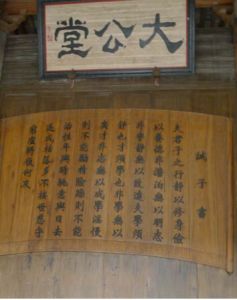 大公堂
誡子書
夫君子之行靜以修身儉
以養德非澹泊無以明志
非寧靜無以致遠夫學須
靜也才須學也非學無以
廣才非志無以成學滔慢
則不能勵精險躁則不能
治性年與時馳意與日去
遂成枯落多不接世悲守
窮廬將復何及